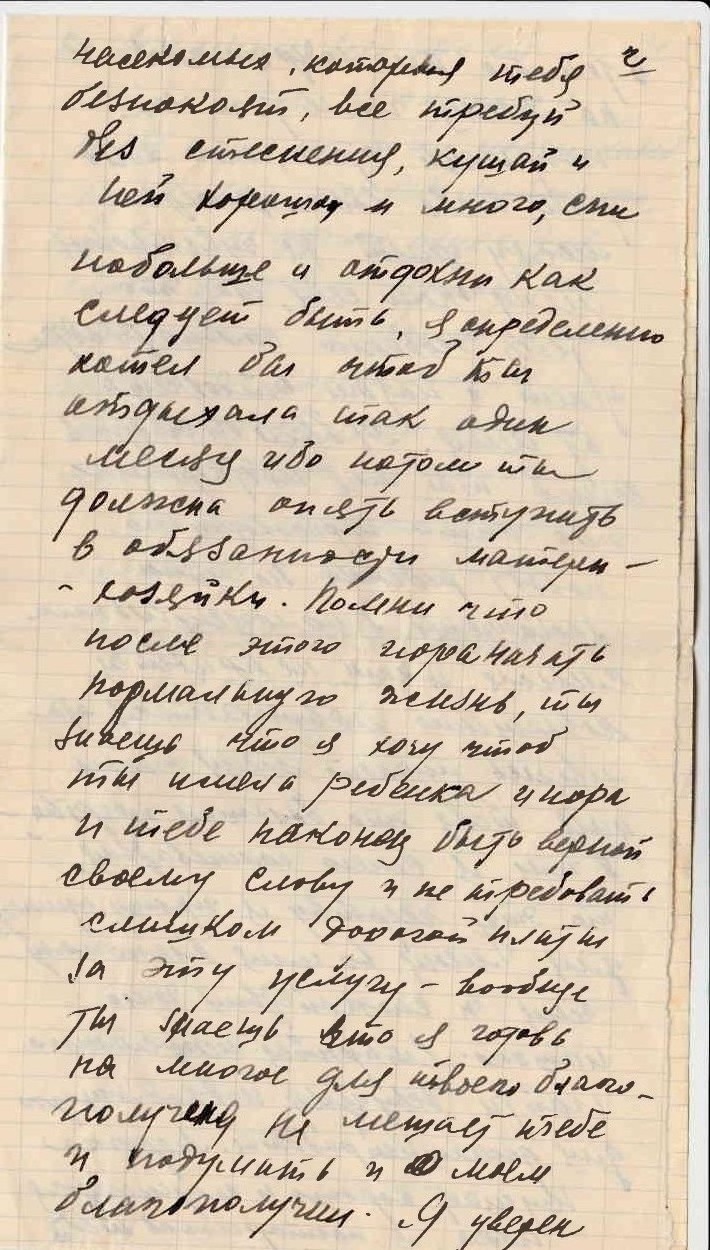 насекомых, которыя тебя 2
безпокоят, все требуй
без стеснения, кушай и
пей хорошо и много, спи
побольше и отдохни как
следует быть, я определенно
хотел бы чтоб ты
отдыхала так один
месяц ибо потом ты
должна опять вступить
в обязанности матери-
- хозяйки. Помни что
после этого пора начать
нормальную жизнь, ты
знаешь что я хочу чтоб
ты имела ребенка и пора
и тебе наконец быть верной
своему слову и не требовать
слишком дорогой платы
за эту услугу - вообще
ты знаешь что я готовь
на многое для твоего благо-
получия не мешает тебе
и подумать и о моем
благополучии. Я уверен